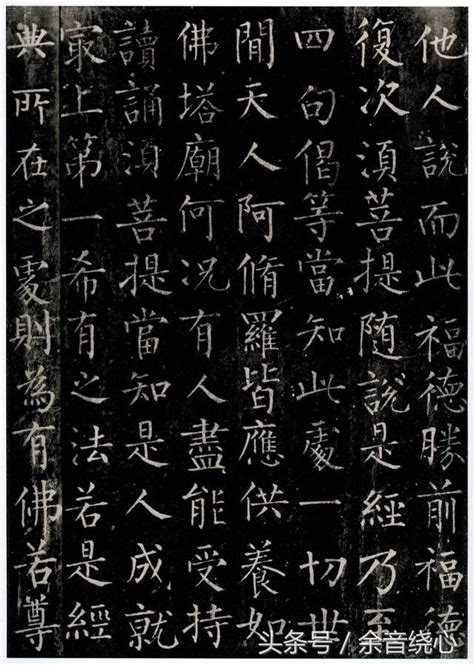 他人說而此福德勝前福德
復次須菩提隨說是經乃至
四句偈等當知此處一切世
間天人阿脩羅皆應供養如
佛塔廟何況有人盡能受持
讀誦須菩提當知是人成就
最上第一希有之法若是經
典所在之處則為有佛若尊
头条号 / 余音绕心